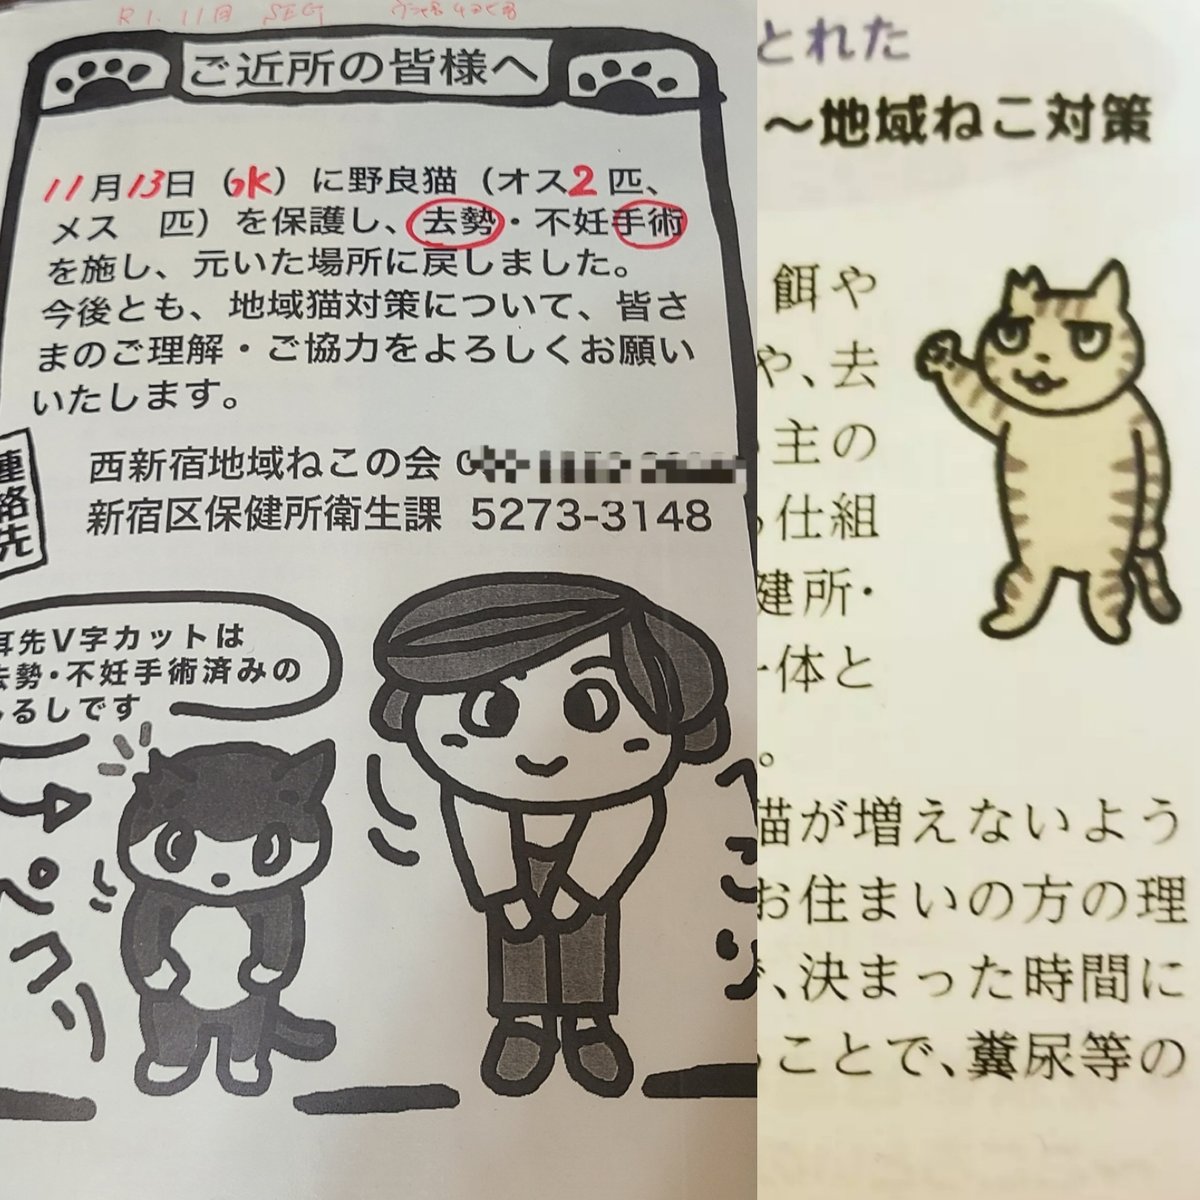 R1.11月 SEG
ご近所の皆様へ
11月13日（水）に野良猫（オス2匹、
メス　匹）を保護し、去勢・不妊手術
を施し、元いた場所に戻しました。
今後とも、地域猫対策について、皆さ
まのご理解・ご協力をよろしくお願い
いたします。
連絡先
西新宿地域ねこの会 0
新宿区保健所衛生課 5273-3148
耳先V字カットは
去勢・不妊手術済みの
しるしです
ペコリ
ペこり
とれた
～地域ねこ対策
餌や
や、去
主の
仕組
健所・
一体と
。
猫が増えないよう
お住まいの方の理
、決まった時間に
ことで、糞尿等の